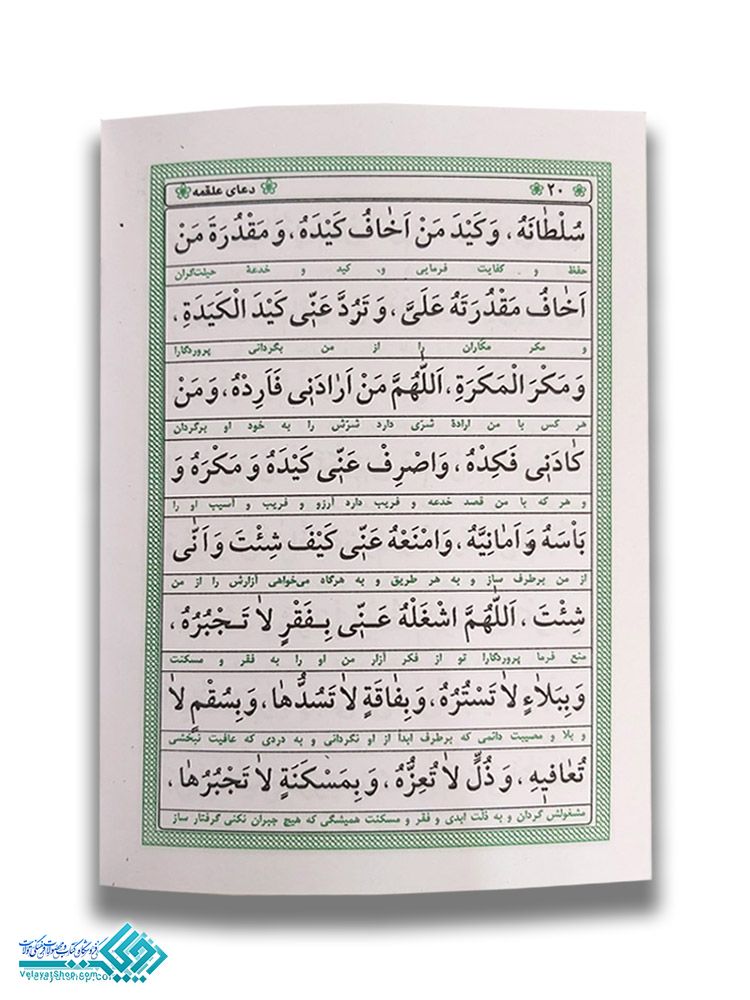 ۲۰ دعای علقمه
سُلْطٰانَهُ ، وَ كَيْدَ مَنْ اَخٰافُ كَيْدَهُ ، وَ مَقْدُرَةَ مَنْ
حفظ و کفایت فرمایی و، کید و خدعهٔ حیلت‌گران
اَخٰافُ مَقْدُرَتَهُ عَلَيَّ ، وَ تَرُدَّ عَنّٖى كَيْدَ الْكَيَدَةِ ،
و مکر مکاران را از من بگردانی پروردگارا
وَ مَكْرَ الْمَكَرَةِ ، اَللّٰهُمَّ مَنْ اَرٰادَنٖى فَاَرِدْهُ ، وَ مَنْ
هر کس با من ارادهٔ شرّی دارد شرّش را به خود او برگردان
كٰادَنٖى فَكِدْهُ ، وَاصْرِفْ عَنّٖى كَيْدَهُ وَ مَكْرَهُ وَ
و هر که با من قصد خدعه و فریب دارد آرزو و فریب و آسیب او را
بَاْسَهُ وَ اَمٰانِيَّهُ ، وَامْنَعْهُ عَنّٖى كَيْفَ شِئْتَ وَ اَنّٰى
از من برطرف ساز و به هر طریق و به هرگاه می‌خواهی آزارش را از من
شِئْتَ ، اَللّٰهُمَّ اشْغَلْهُ عَـنّٖى بِـفَقْرٍ لاٰ تَـجْبُرُهُ ،
منع فرما پروردگارا تو از فکر آزار من او را به فقر و مسکنت
وَ بِبَلاٰءٍ لاٰ تَسْتُرُهُ ، وَ بِفٰاقَةٍ لاٰ تَسُدُّهٰا ، وَ بِسُقْمٍ لاٰ
و بلا و مصیبت دائمی که برطرف ابداً از او نگردانی و به دردی که عافیت نبخشی
تُعٰافيٖهِ ، وَ ذُلٍّ لاٰ تُعِزُّهُ ، وَ بِمَسْكَنَةٍ لاٰ تَجْبُرُهٰا ،
مشغولش گردان و به ذلت ابدی و فقر و مسکنت همیشگی که هیچ جبران نکنی گرفتار ساز
VelayatShop.com
Velayatshop.com